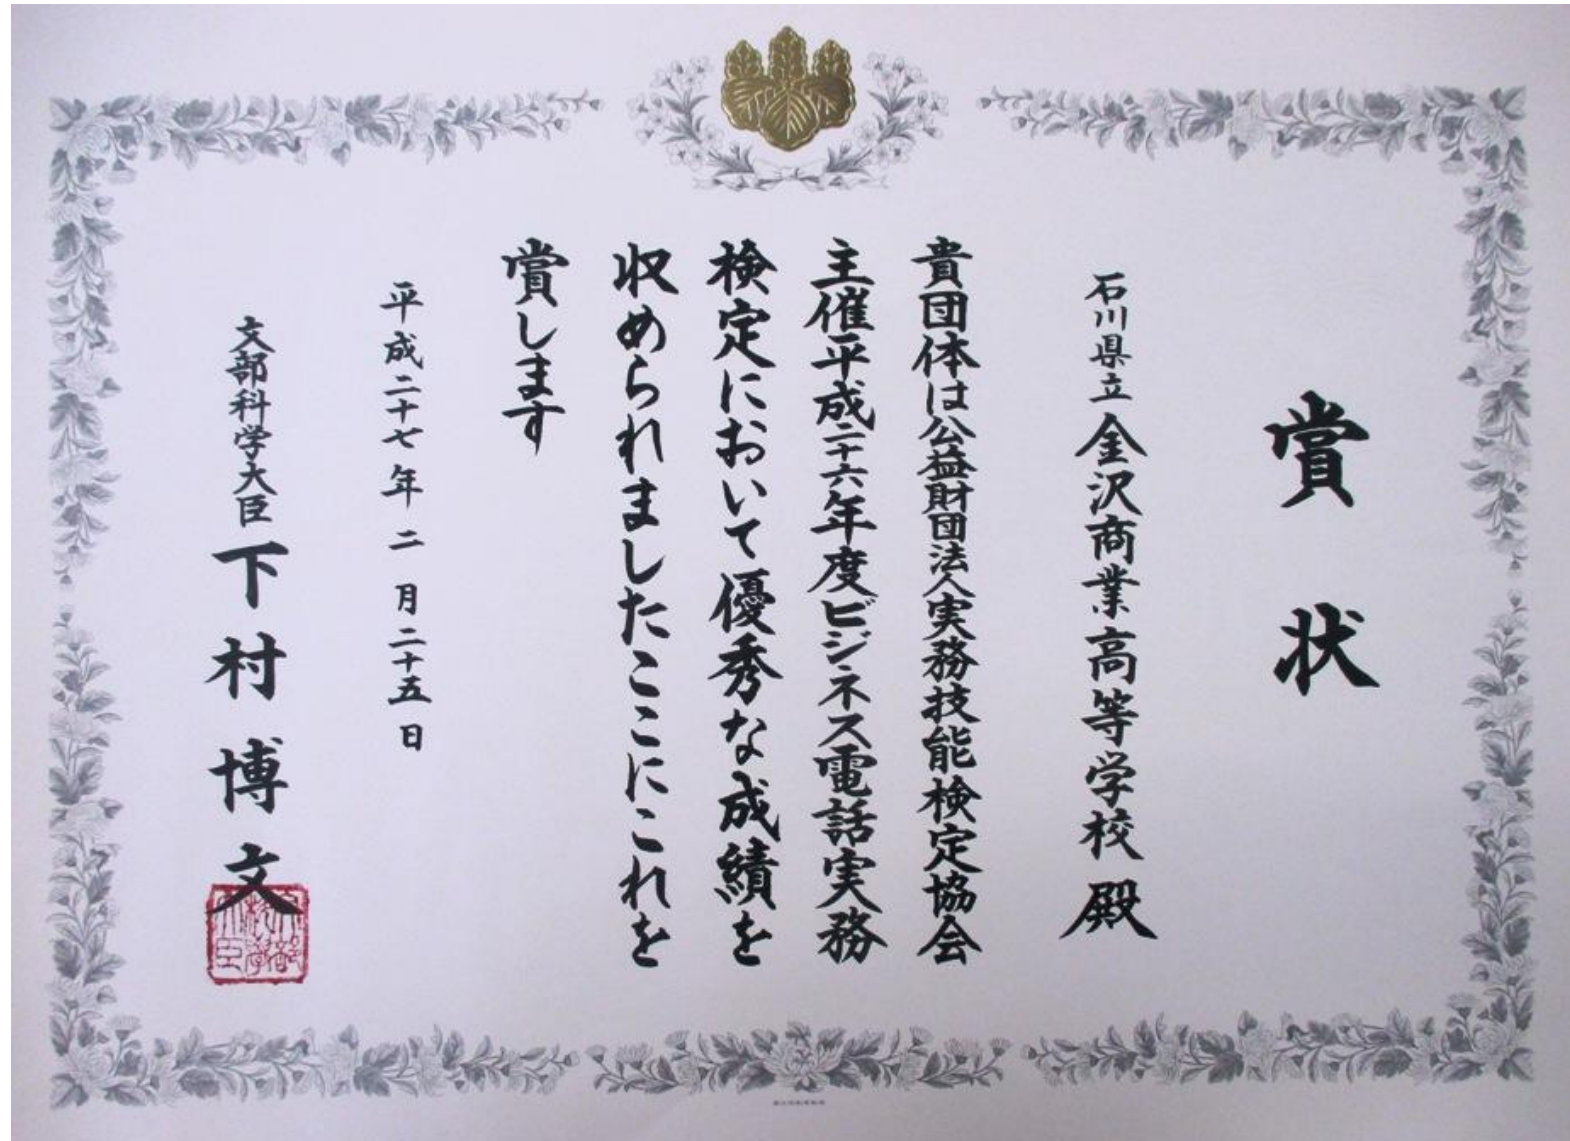 賞状
石川県立金沢商業高等学校殿
貴団体は公益財団法人実務技能検定協会
主催平成二十六年度ビジネス電話実務
検定において優秀な成績を
収められましたここにこれを
賞します
平成二十七年二月二十五日
文部科学大臣下村博文